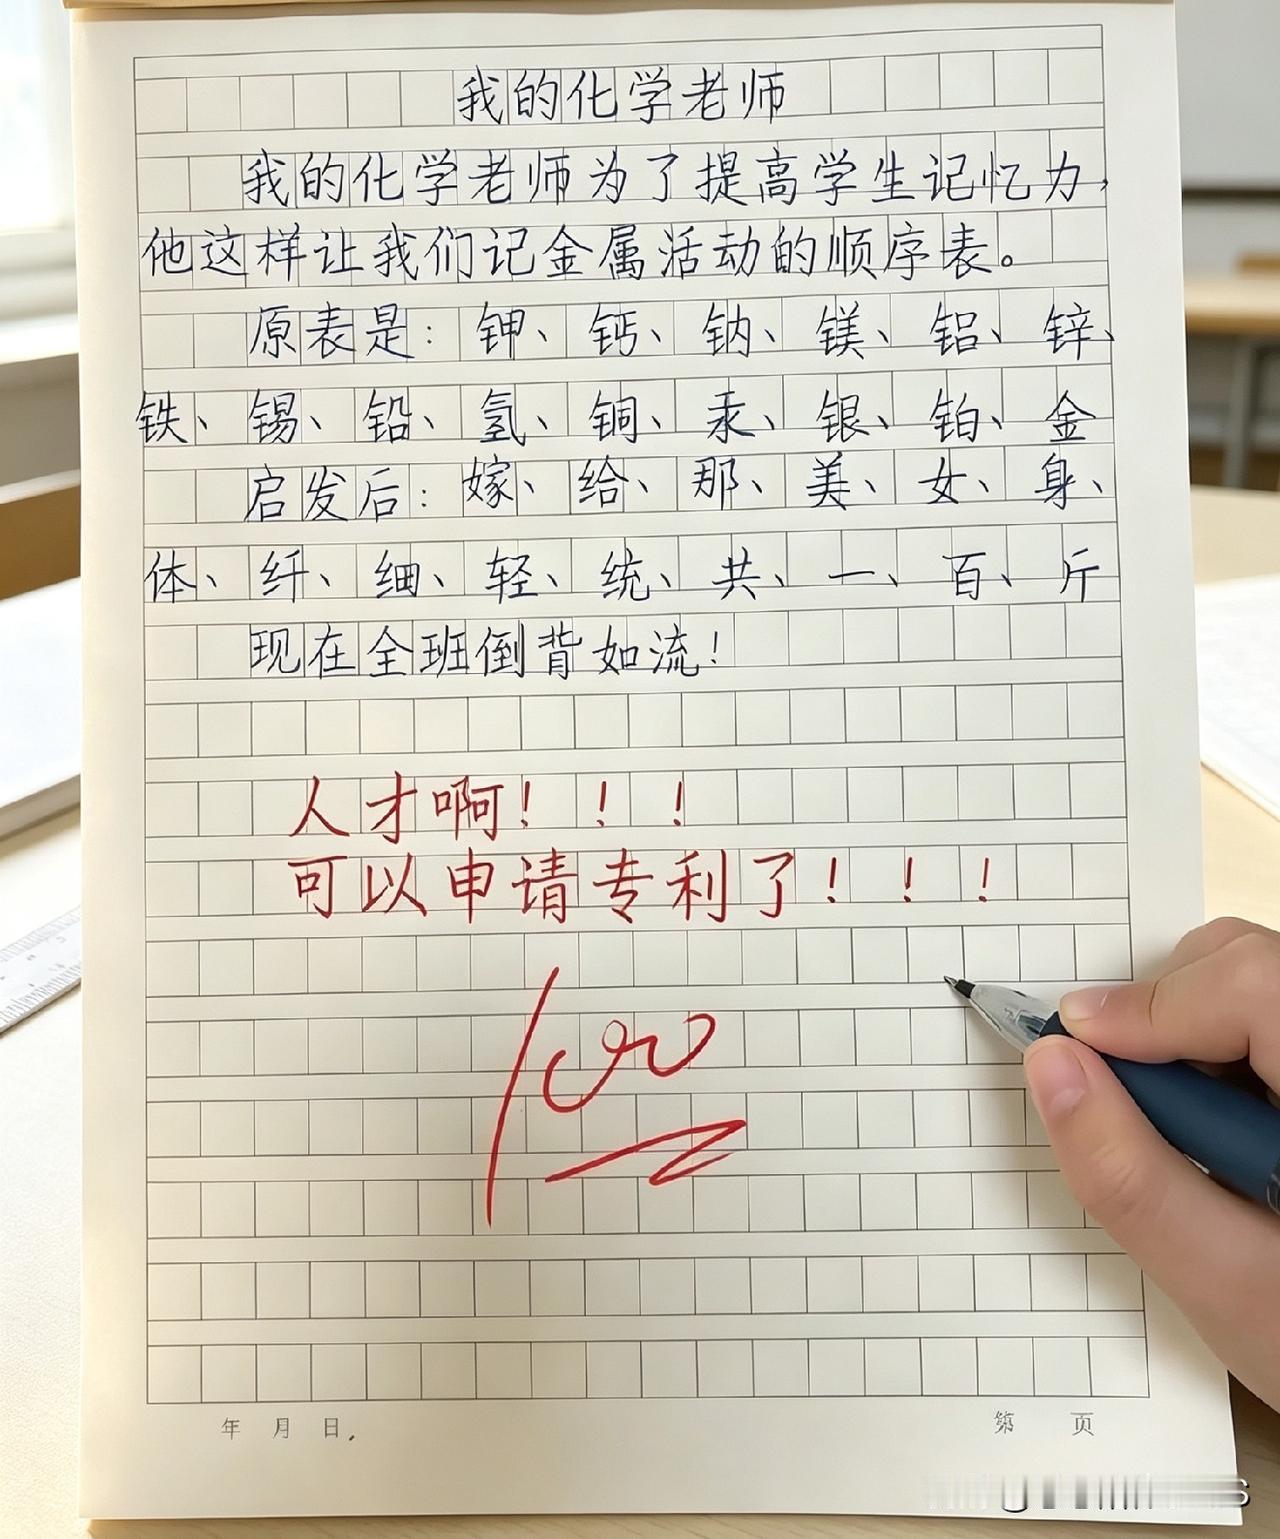 我的化学老师
我的化学老师为了提高学生记忆力,
他这样让我们记金属活动的顺序表。
原表是：钾、钙、钠、镁、铝、锌、
铁、锡、铅、氢、铜、汞、银、铂、金
启发后：嫁、给、那、美、女、身、
体、纤、细、轻、统、共、一、百、斤
现在全班倒背如流！
人才啊！！！
可以申请专利了！！！
100
年 月 日,
第 页